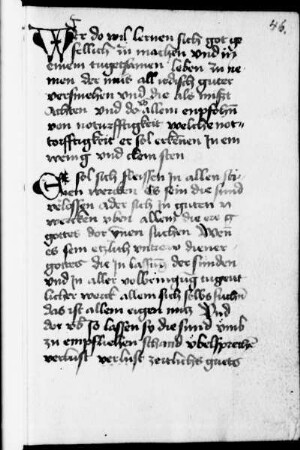 46.
Wer do wil lernen sich got ge
fellich zu machen und in
einem tugetsamen leben zu ne
men der mus all irdisch guter
versmehen und die als mist
achten und do allem empfohn
von noturfftigkeit welche not-
torfftigkeit er sol erkenen in em
wenig und cleinsten
Er sol sich fleissen in allen sa
chen werden Es sein die sund
verlossen ader sich in guten w
wercken uben allem die ere g
gottes dor ynen suchen Wen
es sein etzlich untrew diener
gottes die in lassung der sunden
und in aller volbringug tugent
licher werck allem sich selbs suchn
das ist allem eigen nutz Und
dor vb so lassen sy die sund umb
zu empfliehen schand ubelsprechen
verlust verlust zeitlichs guets